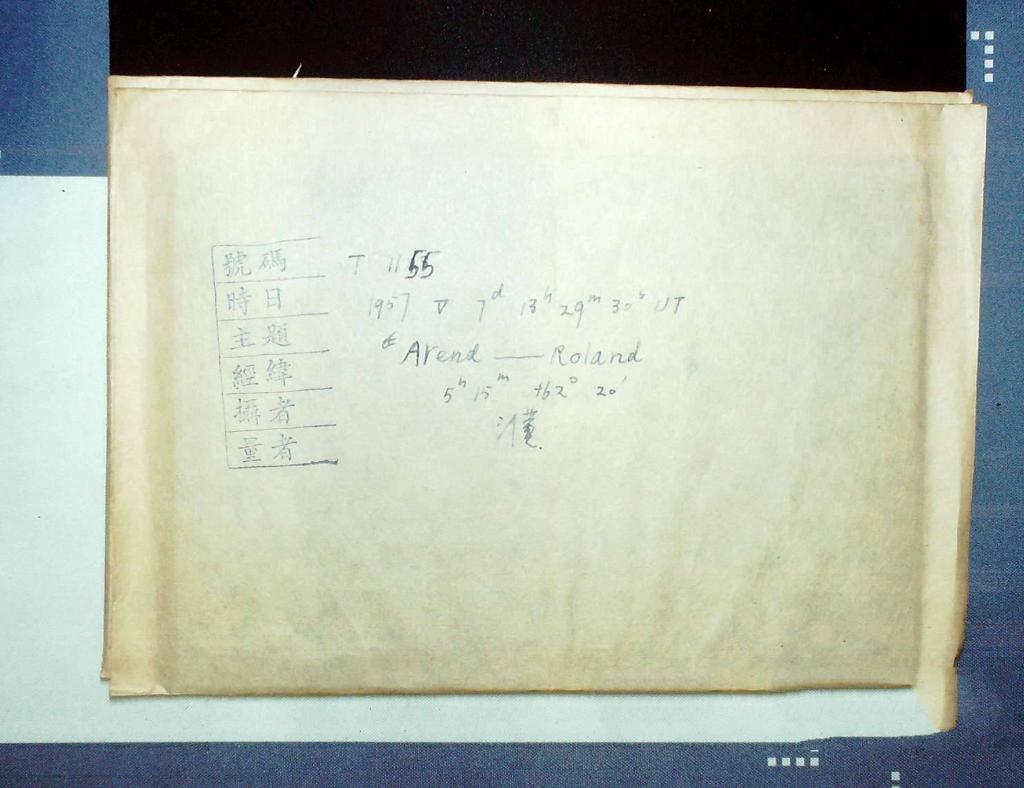 號碼 T 1155
時日 1957 V 7d 13h 29m 30s UT
主題 Arend — Roland
經緯 5h 15m +62° 20'
攝者
量者